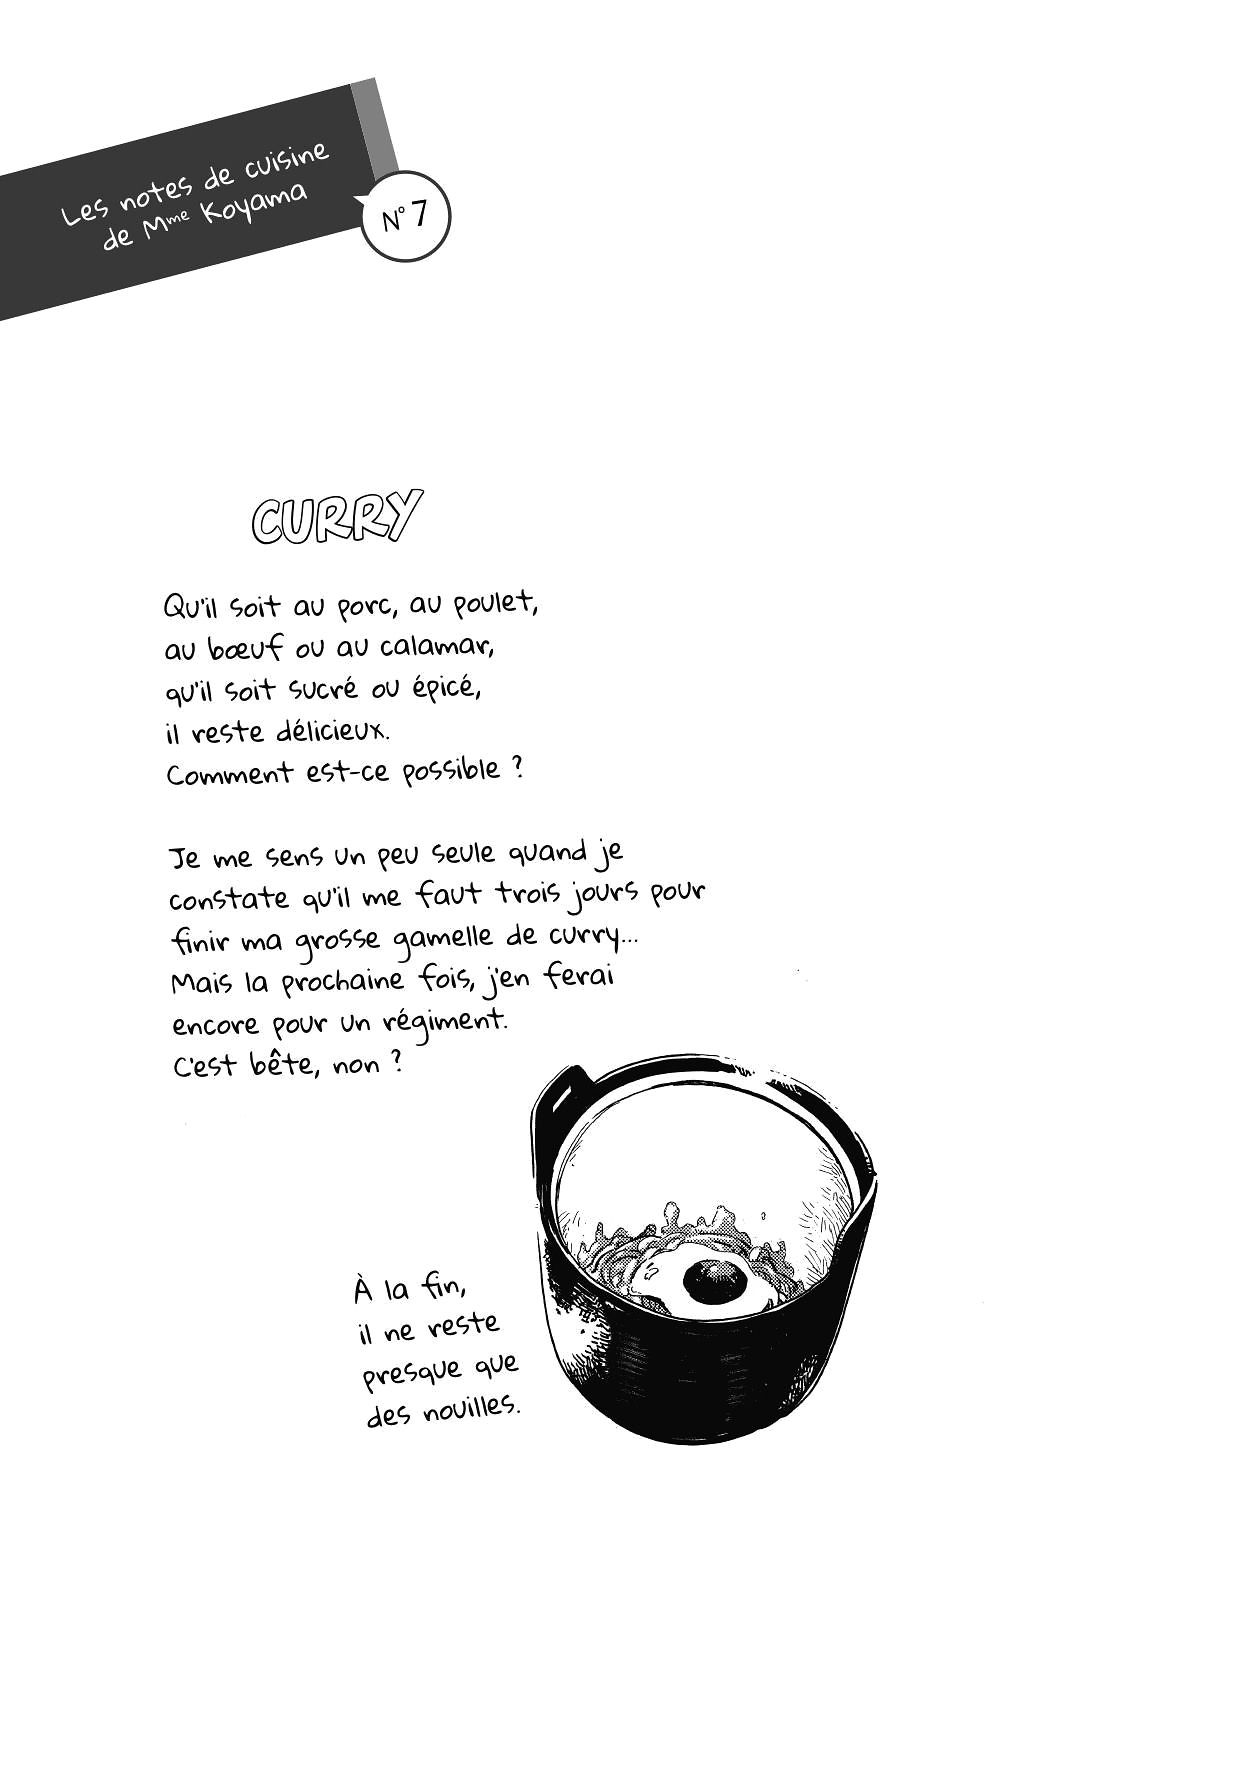 Les notes de cuisine
de Mme Koyama
N° 7
CURRY
Qu'il soit au porc, au poulet,
au bœuf ou au calamar,
qu'il soit sucré ou épicé,
il reste délicieux.
Comment est-ce possible ?
Je me sens un peu seule quand je
constate qu'il me faut trois jours pour
finir ma grosse gamelle de curry...
Mais la prochaine fois, j'en ferai
encore pour un régiment.
C'est bête, non ?
À la fin,
il ne reste
presque que
des nouilles.